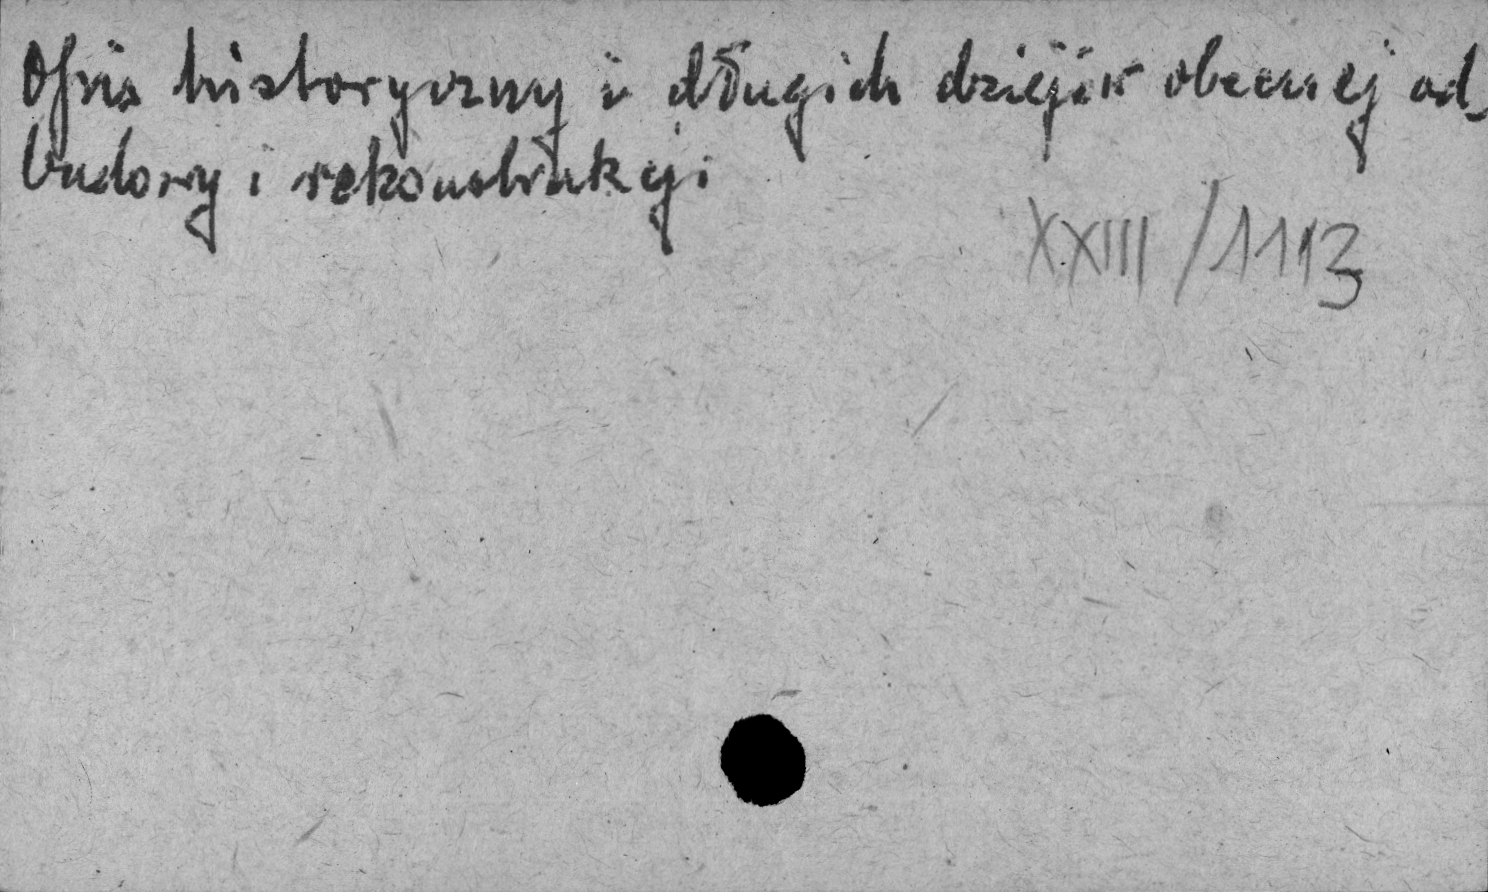 Opis historyczny i długich dziejów obecnej od-
budowy i rekonstrukcji
XXIII/1113